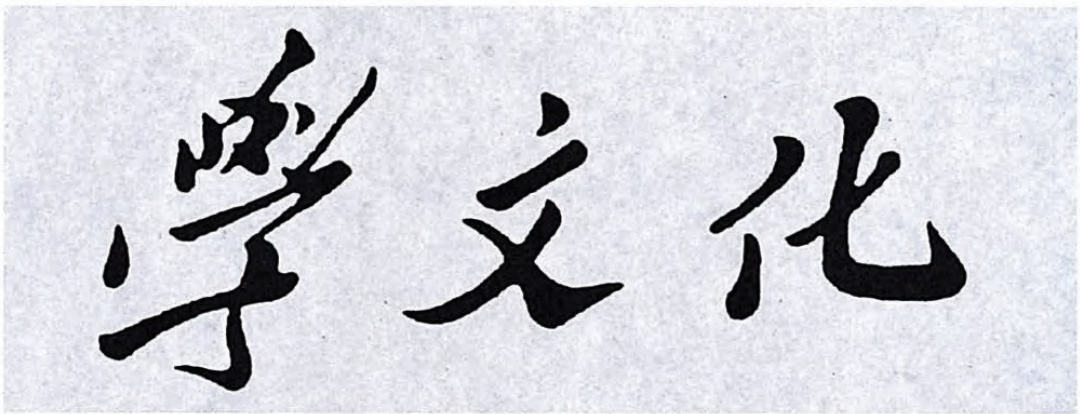 學文化